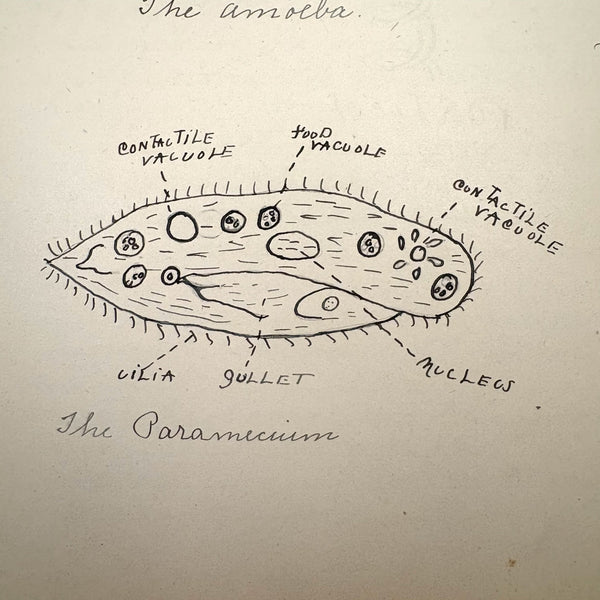 The amoeba.
CONTACTILE
VACUOLE
FOOD
VACUOLE
CONTACTILE
VACUOLE
CILIA
GULLET
NUCLEUS
The Paramecium